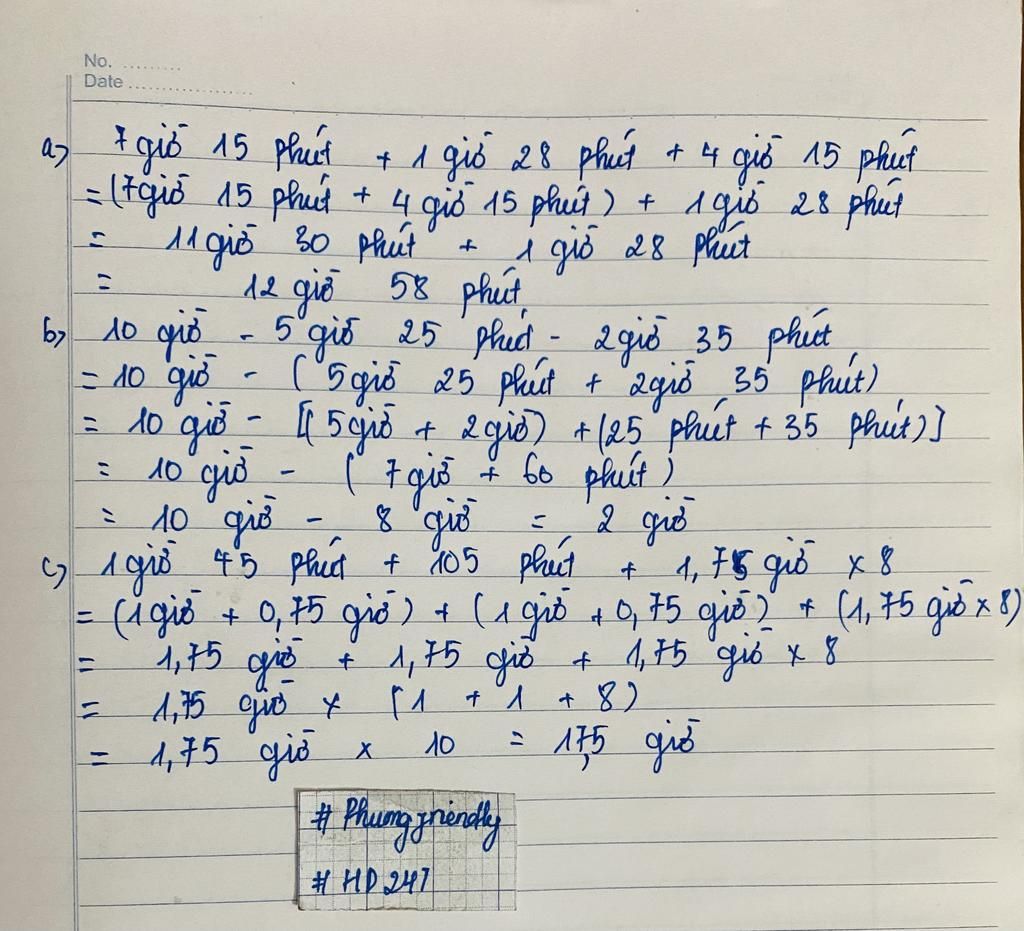 No. .........
Date ....................
a) 7 giờ 15 phút + 1 giờ 28 phút + 4 giờ 15 phút
= (7giờ 15 phút + 4 giờ 15 phút) + 1 giờ 28 phút
= 11 giờ 30 phút + 1 giờ 28 phút
= 12 giờ 58 phút
b) 10 giờ - 5 giờ 25 phút - 2giờ 35 phút
= 10 giờ - ( 5giờ 25 phút + 2giờ 35 phút)
= 10 giờ - [( 5giờ + 2giờ) + (25 phút + 35 phút)]
= 10 giờ - ( 7 giờ + 60 phút )
= 10 giờ - 8 giờ = 2 giờ
c) 1giờ 45 phút + 105 phút + 1,75 giờ × 8
= (1giờ + 0,75 giờ) + (1 giờ + 0,75 giờ) + (1,75 giờ × 8)
= 1,75 giờ + 1,75 giờ + 1,75 giờ × 8
= 1,75 giờ × (1 + 1 + 8)
= 1,75 giờ × 10 = 17,5 giờ
# Phungfriendly
# HD247